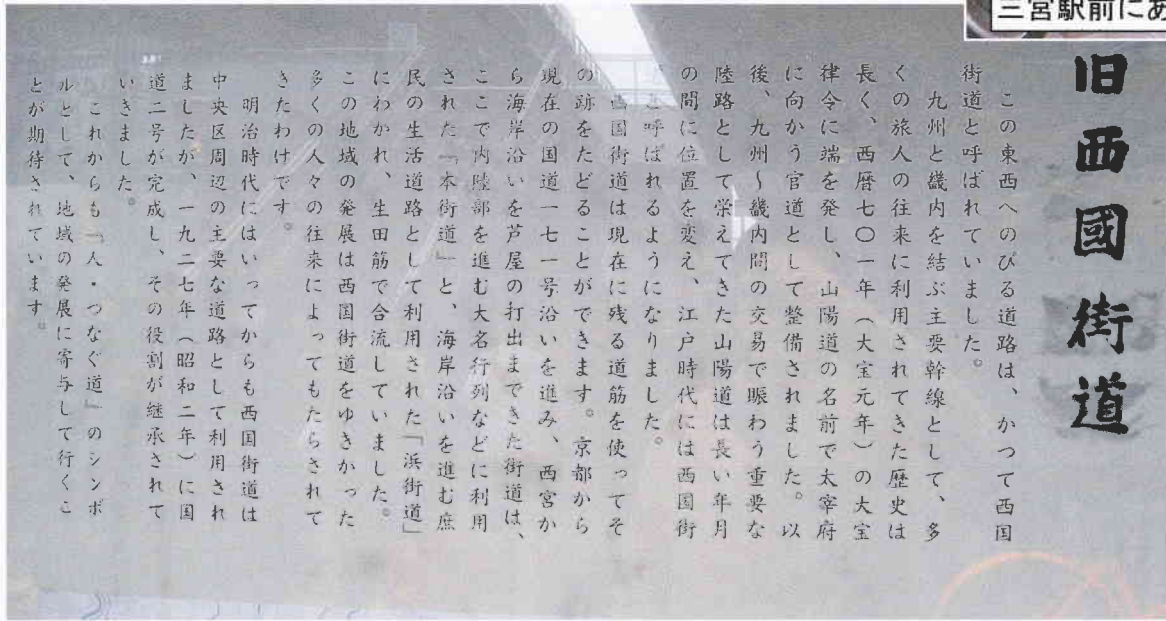 三宮駅前にあ
旧西國街道
この東西へのびる道路は、かつて西国
街道と呼ばれていました。
九州と畿内を結ぶ主要幹線として、多
くの旅人の往来に利用されてきた歴史は
長く、西暦七〇一年（大宝元年）の大宝
律令に端を発し、山陽道の名前で太宰府
に向かう官道として整備されました。以
後、九州〜畿内間の交易で賑わう重要な
陸路として栄えてきた山陽道は長い年月
の間に位置を変え、江戸時代には西国街
と呼ばれるようになりました。
西国街道は現在に残る道筋を使ってそ
の跡をたどることができます。京都から
現在の国道一七一号沿いを進み、西宮か
ら海岸沿いを芦屋の打出まできた街道は、
ここで内陸部を進む大名行列などに利用
された「本街道」と、海岸沿いを進む庶
民の生活道路として利用された「浜街道」
にわかれ、生田筋で合流していました。
この地域の発展は西国街道をゆきかった
多くの人々の往来によってもたらされて
きたわけです。
明治時代にはいってからも西国街道は
中央区周辺の主要な道路として利用され
ましたが、一九二七年（昭和二年）に国
道二号が完成し、その役割が継承されて
いきました。
これからも「人・つなぐ道」のシンボ
ルとして、地域の発展に寄与して行くこ
とが期待されています。